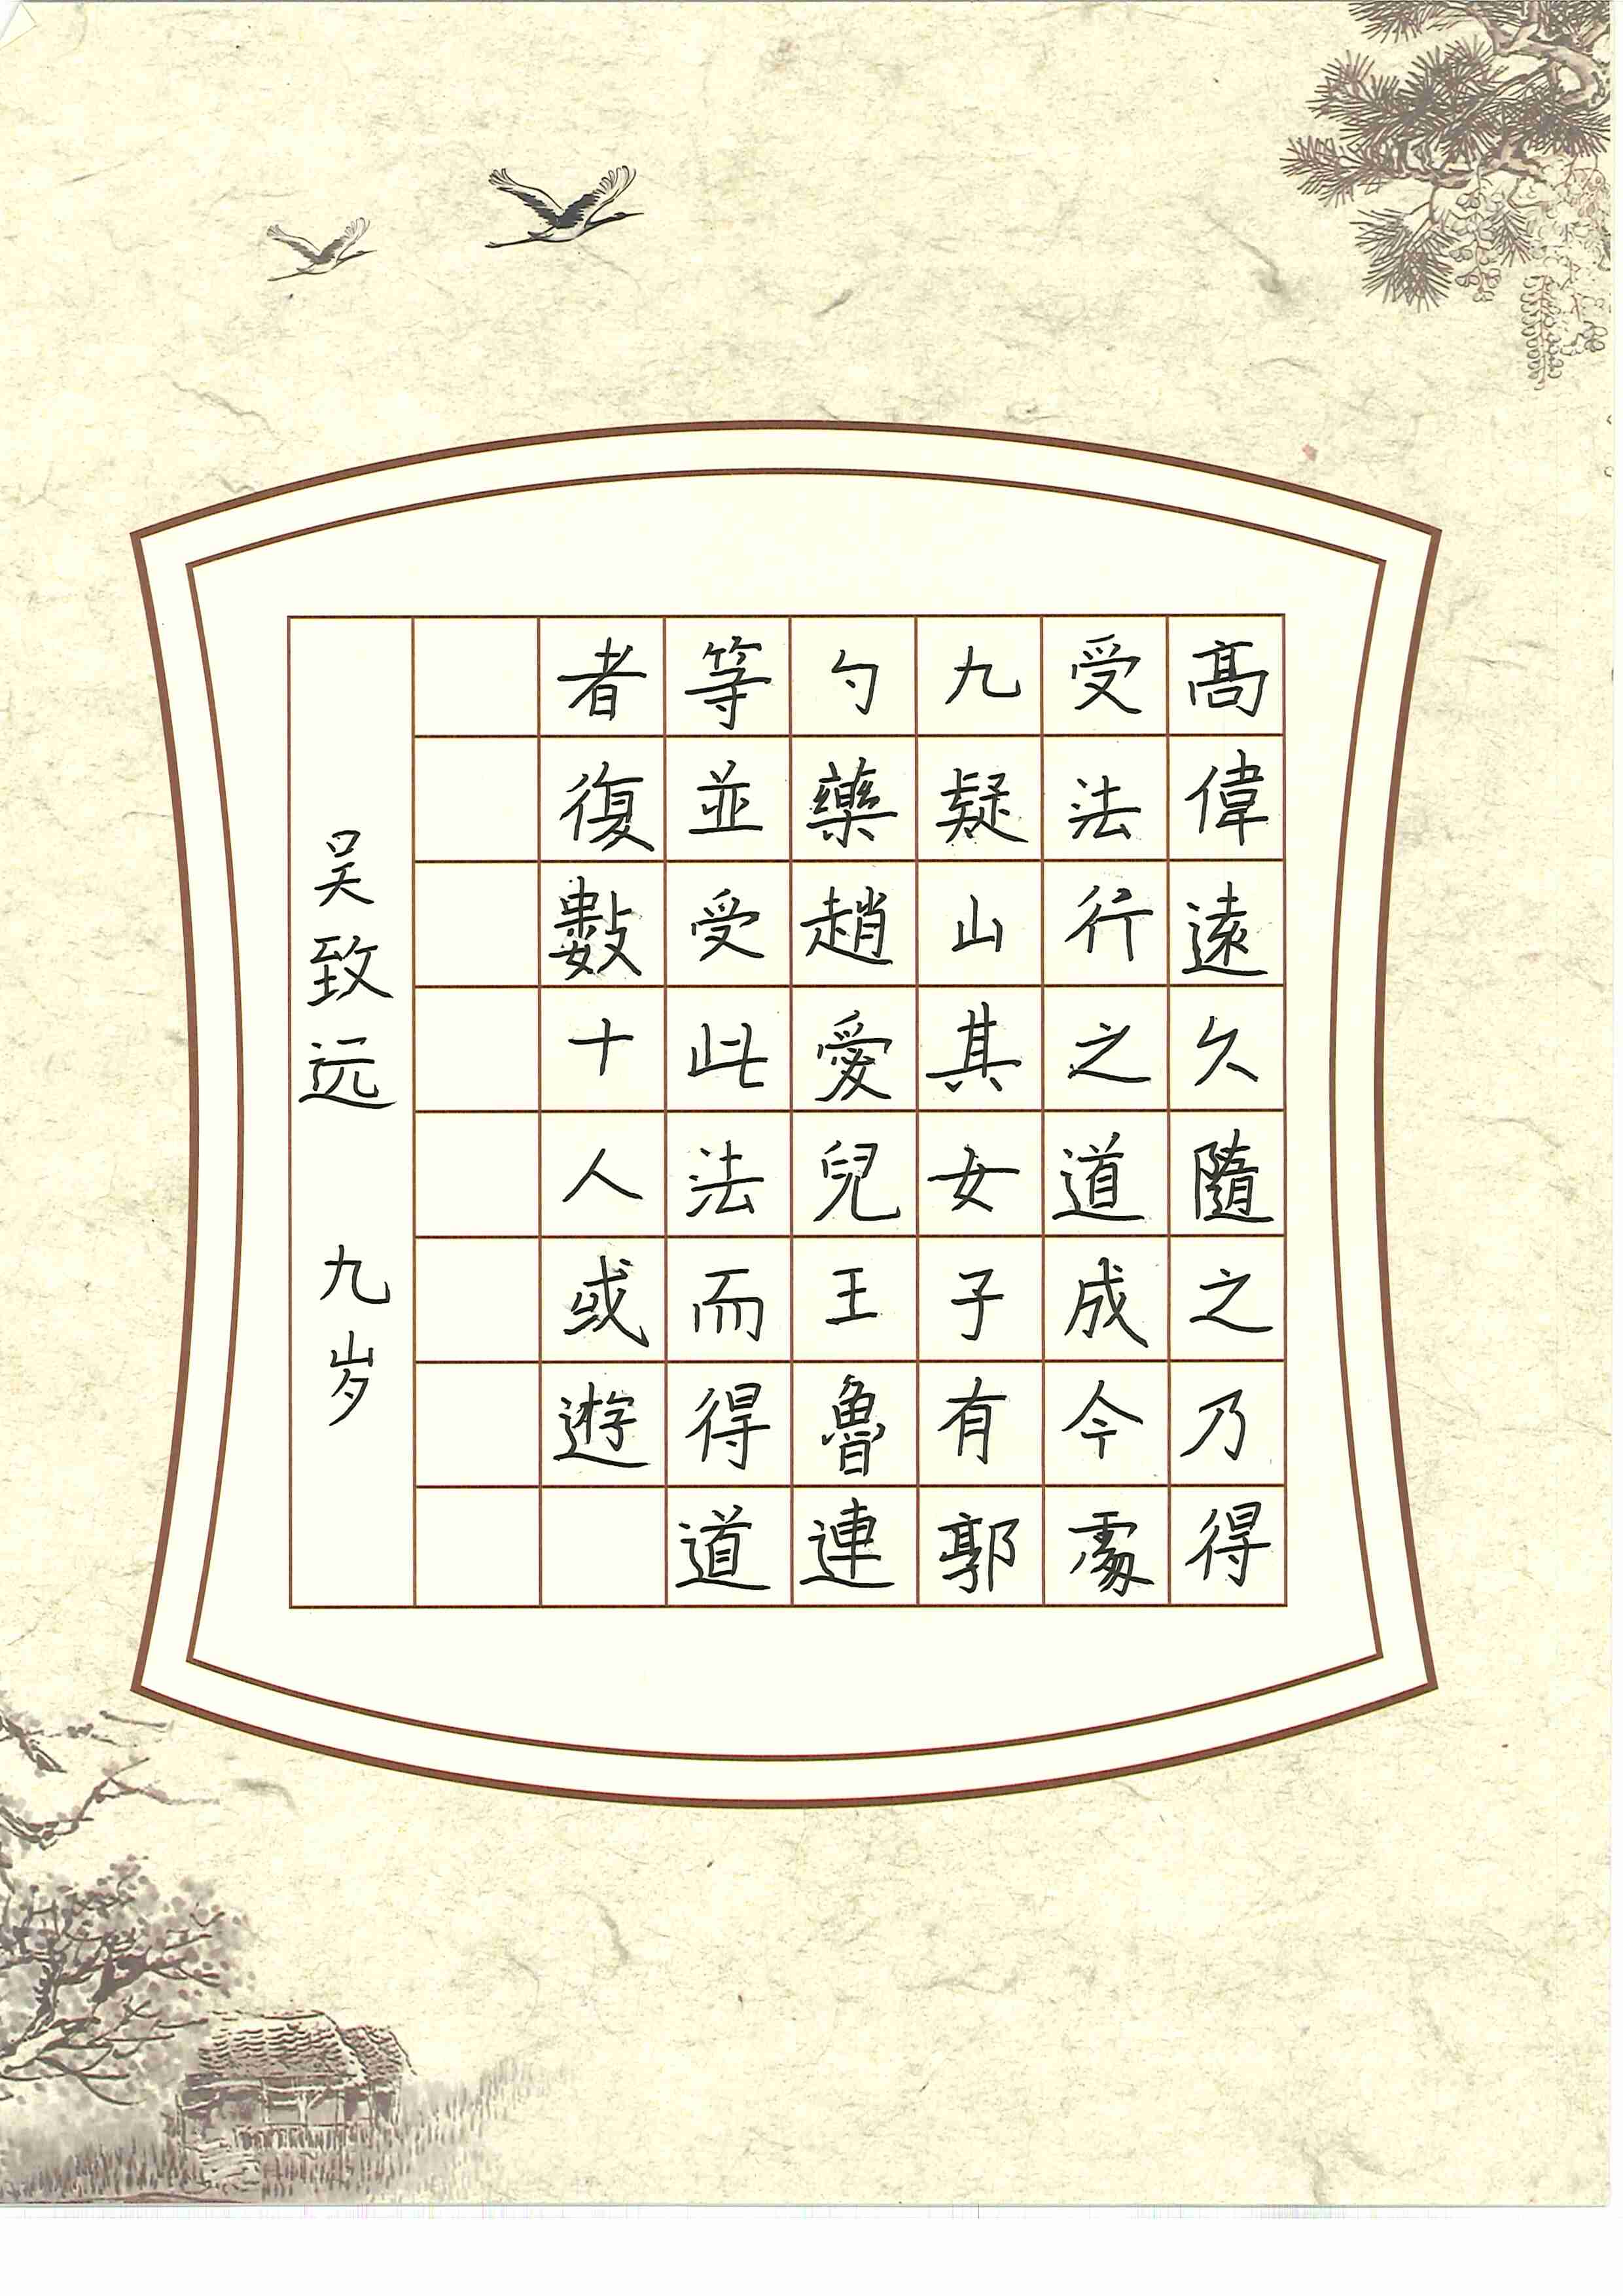 髙偉遠久隨之乃得
受法行之道成今處
九疑山其女子有郭
勺藥趙愛兒王魯連
等並受此法而得道
者復數十人或遊
吴致远 九岁